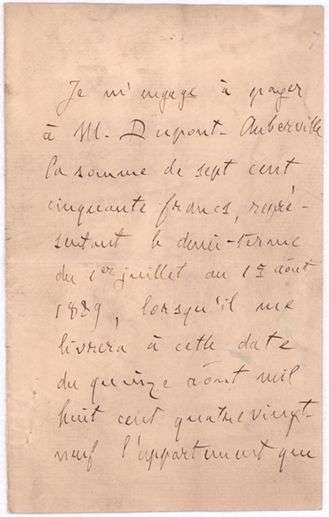 Je m'engage à payer
à M. Dupont-Auberville
la somme de sept cent
cinquante francs, repré-
sentant le demi-terme
du 1er juillet au 15 août
1889, lorsqu'il me
livrera à cette date
du quinze août mil
huit cent quatre vingt-
neuf l'appartement que